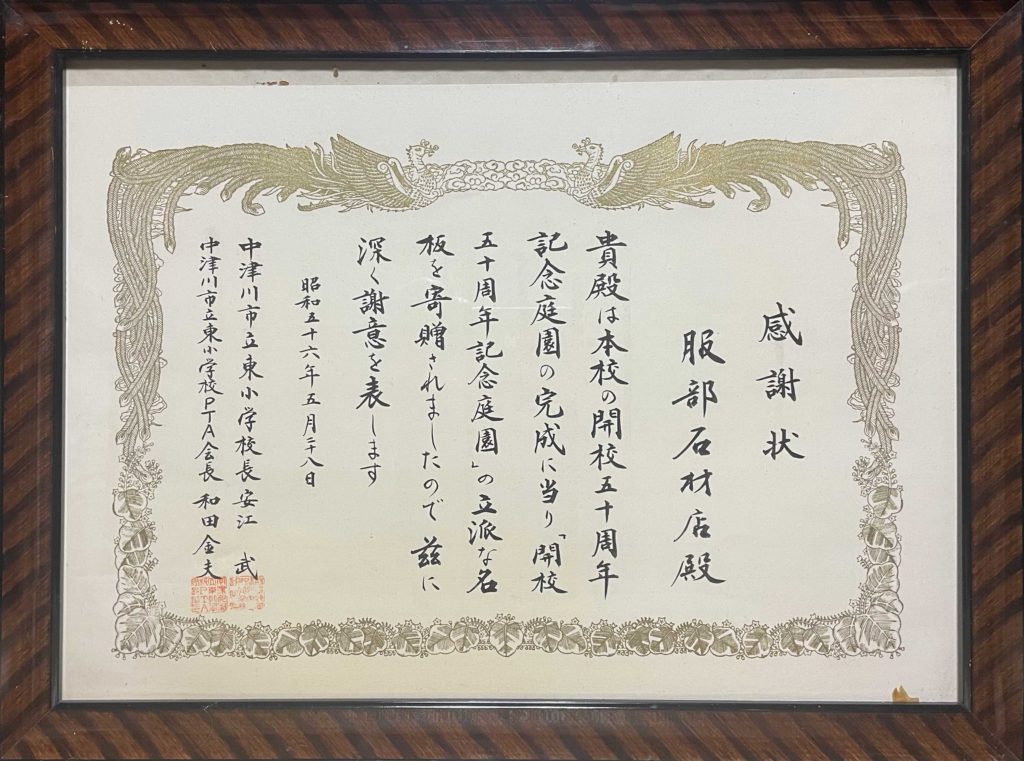 感謝状
服部石材店殿
貴殿は本校の開校五十周年
記念庭園の完成に当り「開校
五十周年記念庭園」の立派な名
板を寄贈されましたので茲に
深く謝意を表します
昭和五十六年五月二十八日
中津川市立東小学校長 安江 武
中津川市立東小学校PTA会長 和田金夫